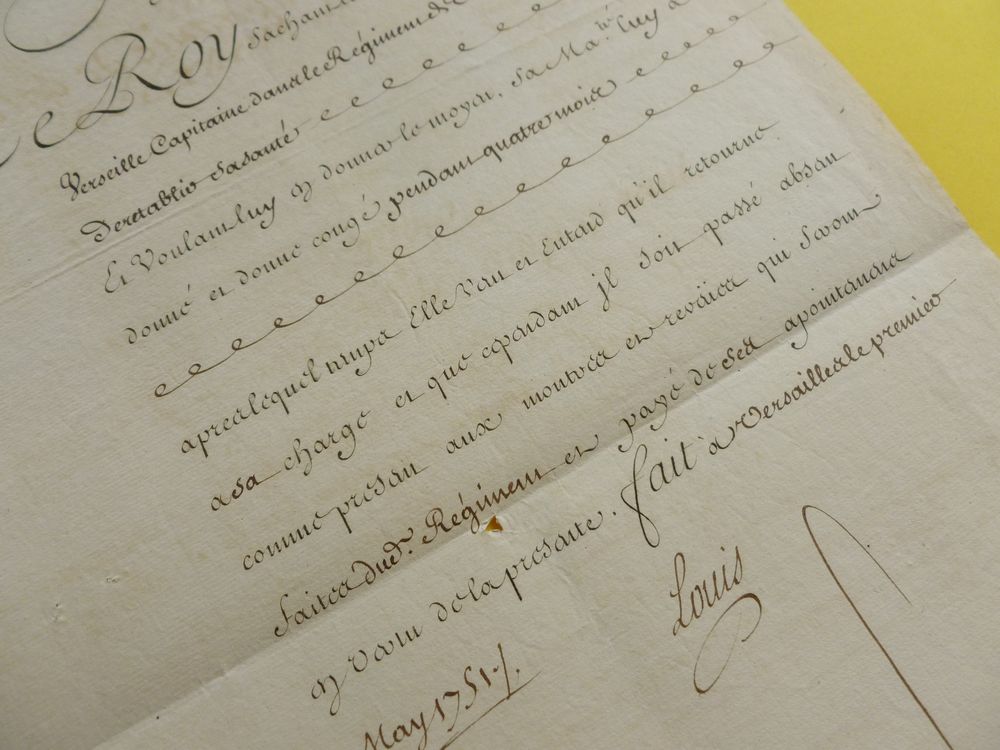 Le Roy sachant
Verseille Capitaine dans le Régiment de
de retablir sa santé
Et Voulant luy y donner le moyen, Sa Ma.té luy a
donné et donne congé pendant quatre mois
apres lequel temps Elle Veut et Entend qu'il retourne
a sa charge et que cependant jl soit passé absent
comme present aux montres et reveües qui seront
faites dud.t Régiment et payé de ses apointemens
y vertu de la presente. fait à Versailles le premier
May 1751./.
Louis